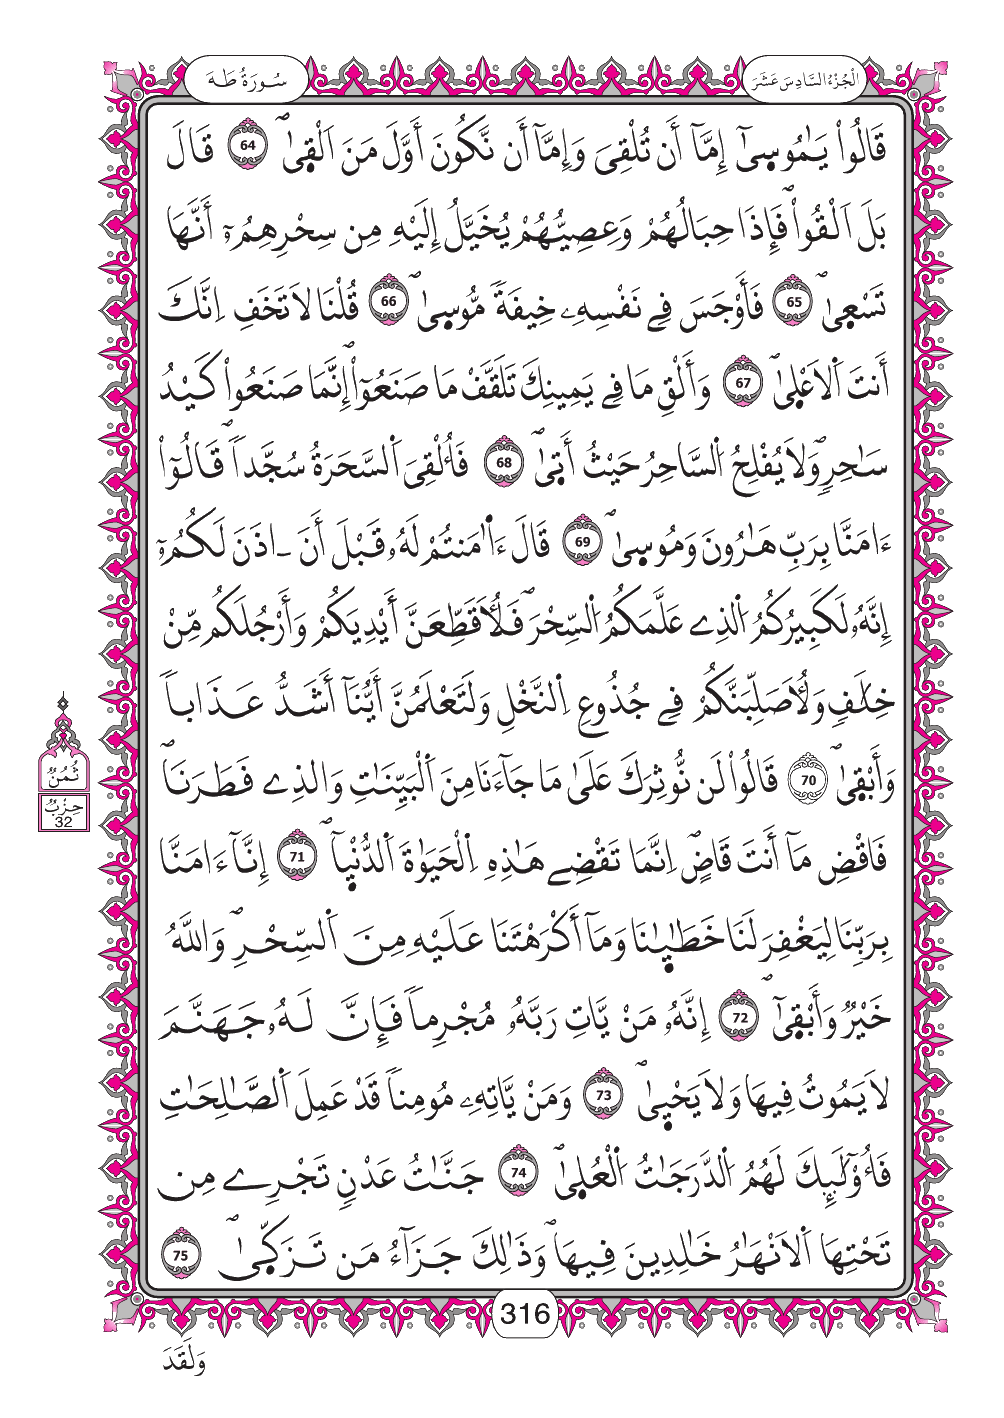 الْجُزْءُ السَّادِسَ عَشَرَ
سُورَةُ طَهَ
قَالُواْ يَٰمُوسَىٰٓ إِمَّآ أَن تُلْقِيَ وَإِمَّآ أَن نَّكُونَ أَوَّلَ مَنَ اَلْقَىٰۖ 64 قَالَ
بَلَ اَلْقُواْۖ فَإِذَا حِبَالُهُمْ وَعِصِيُّهُمْ يُخَيَّلُ إِلَيْهِ مِن سِحْرِهِمُۥٓ أَنَّهَا
تَسْعَىٰۖ 65 فَأَوْجَسَ فِے نَفْسِهِۦ خِيفَةٗ مُّوسَىٰۖ 66 قُلْنَا لَا تَخَفِ اِنَّكَ
أَنتَ اَلَاعْلَىٰۖ 67 وَأَلْقِ مَا فِے يَمِينِكَ تَلَقَّفْ مَا صَنَعُوٓاْۖ إِنَّمَا صَنَعُواْ كَيْدُ
سَٰحِرٖۖ وَلَا يُفْلِحُ اُلسَّاحِرُ حَيْثُ أَتَىٰۖ 68 فَأُلْقِيَ اَلسَّحَرَةُ سُجَّداٗۖ قَالُوٓاْ
ءَامَنَّا بِرَبِّ هَٰرُونَ وَمُوسَىٰۖ 69 قَالَ ءَا۬مَنتُمْ لَهُۥ قَبْلَ أَنَ اٰذَنَ لَكُمُۥٓ
إِنَّهُۥ لَكَبِيرُكُمُ اُلذِے عَلَّمَكُمُ اُلسِّحْرَۖ فَلَأُقَطِّعَنَّ أَيْدِيَكُمْ وَأَرْجُلَكُم مِّنْ
خِلَٰفٖ وَلَأُصَلِّبَنَّكُمْ فِے جُذُوعِ اِلنَّخْلِ وَلَتَعْلَمُنَّ أَيُّنَآ أَشَدُّ عَذَاباٗ
وَأَبْقَىٰۖ 70 قَالُواْ لَن نُّوثِرَكَ عَلَىٰ مَا جَآءَنَا مِنَ اَلْبَيِّنَٰتِ وَالذِے فَطَرَنَاۖ
فَاقْضِ مَآ أَنتَ قَاضٍۖ اِنَّمَا تَقْضِے هَٰذِهِ اِلْحَيَوٰةَ اَلدُّنْيَآۖ 71 إِنَّآ ءَامَنَّا
بِرَبِّنَا لِيَغْفِرَ لَنَا خَطَٰيَٰنَا وَمَآ أَكْرَهْتَنَا عَلَيْهِ مِنَ اَلسِّحْرِۖ وَاللَّهُ
خَيْرٞ وَأَبْقَىٰٓۖ 72 إِنَّهُۥ مَنْ يَّاتِ رَبَّهُۥ مُجْرِماٗ فَإِنَّ لَهُۥ جَهَنَّمَ
لَا يَمُوتُ فِيهَا وَلَا يَحْيَىٰۖ 73 وَمَنْ يَّاتِهِۦ مُومِناٗ قَدْ عَمِلَ اَلصَّٰلِحَٰتِ
فَأُوْلَٰٓئِكَ لَهُمُ اُلدَّرَجَٰتُ اُلْعُلَىٰۖ 74 جَنَّٰتُ عَدْنٖ تَجْرِے مِن
تَحْتِهَا اَلَانْهَٰرُ خَٰلِدِينَ فِيهَاۖ وَذَٰلِكَ جَزَآءُ مَن تَزَكَّىٰۖ 75
ثُمُنٞ
حِزْبٞ
32
316
وَلَقَدَ